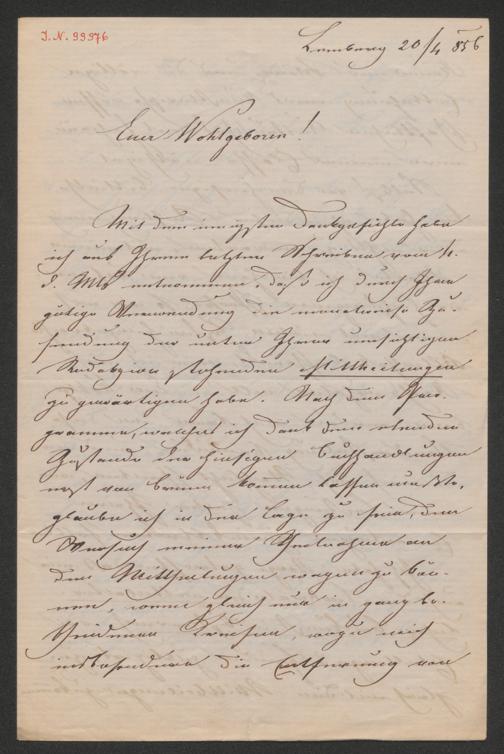 J. N. 99976
Lemberg 20/4 856
Euer Wohlgeboren!
Mit dem innigsten Dankgefühle habe
ich aus Ihrem letzten Schreiben vom 4.
d. Mts entnommen, daß ich durch Ihre
gütige Verwendung die monatweise Zu-
sendung der unter Ihrer umsichtigen
Redakzion stehenden Mittheilungen
zu gewärtigen habe. Nach dem Pro-
gramme, welches ich dank dem elenden
Zustande der hiesigen Buchhandlungen
erst von kommen lassen mußte,
glaube ich in der Lage zu sein, den
Versuch meiner Theilnahme an
den Mittheilungen wagen zu kön-
nen, wenn gleich nur in ganz be-
scheidenem Kreisen, wozu mich
insbesondere die Entfernung von